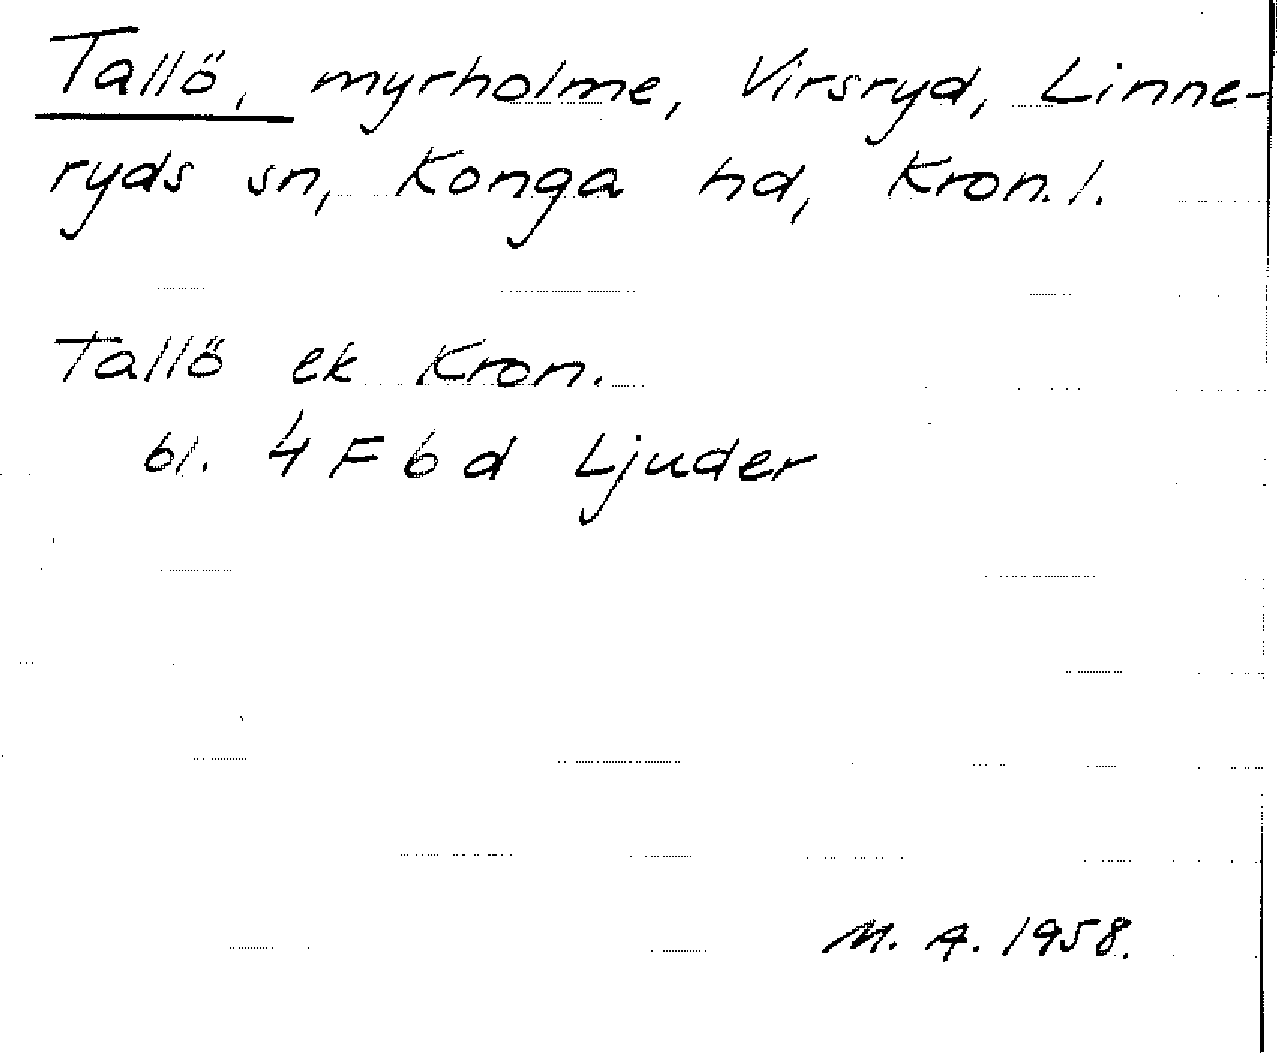 Tallö, myrholme, Virsryd, Linne-
ryds sn, Konga hd, Kron. l.
Tallö ek Kron.
bl. 4 F 6 d Ljuder
M. A. 1958.